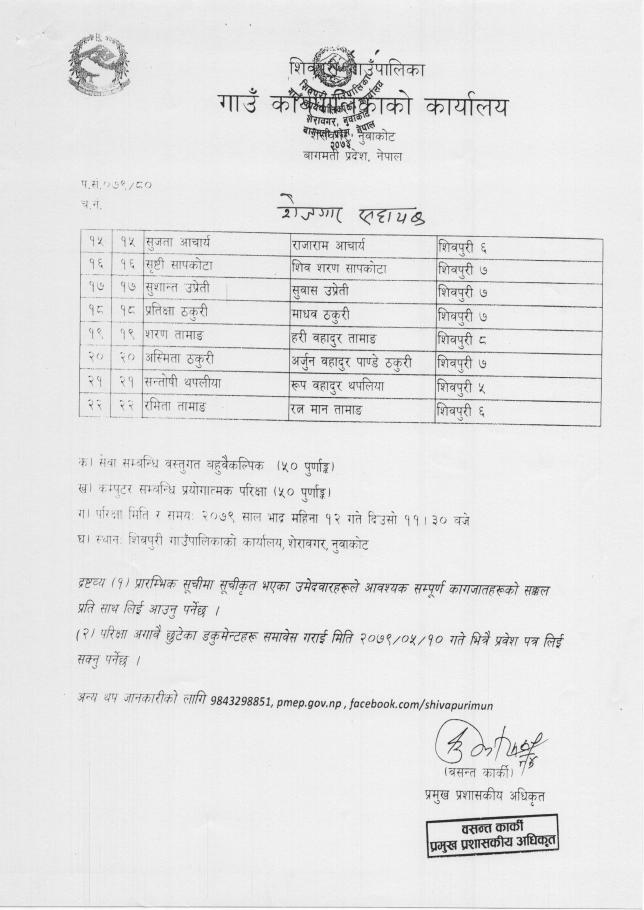 शिवपुरी गाउँपालिका
गाउँ कार्यपालिकाको कार्यालय
शेरावगर, नुवाकोट
बागमती प्रदेश, नेपाल
शिवपुरी गाउँपालिका
शेरावगर, नुवाकोट
बागमती प्रदेश, नेपाल
२०७४
प.सं.०७९/८०
च.नं.
रोजगार सहायक
१५ १५ सुजता आचार्य राजाराम आचार्य शिवपुरी ६
१६ १६ सृष्टी सापकोटा शिव शरण सापकोटा शिवपुरी ७
१७ १७ सुशान्त उप्रेती सुवास उप्रेती शिवपुरी ७
१८ १८ प्रतिक्षा ठकुरी माधव ठकुरी शिवपुरी ७
१९ १९ शरण तामाड हरी वहादुर तामाड शिवपुरी ८
२० २० अस्मिता ठकुरी अर्जुन वहादुर पाण्डे ठकुरी शिवपुरी ७
२१ २१ सन्तोषी थपलीया रूप वहादुर थपलिया शिवपुरी ५
२२ २२ रमिता तामाड रत्न मान तामाड शिवपुरी ६
क। सेवा सम्बन्धि वस्तुगत वहुवैकल्पिक (५० पुर्णाङ्क)
ख। कम्पुटर सम्बन्धि प्रयोगात्मक परिक्षा (५० पुर्णाङ्क)
ग। परिक्षा मिति र समयः २०७९ साल भाद्र महिना १२ गते दिउसो ११।३० वजे
घ। स्थानः शिवपुरी गाउँपालिकाको कार्यालय, शेरावगर, नुवाकोट
द्रष्टव्य (१) प्रारम्भिक सूचीमा सूचीकृत भएका उमेदवारहरूले आवश्यक सम्पूर्ण कागजातहरूको सक्कल
प्रति साथ लिई आउनु पर्नेछ ।
(२) परिक्षा अगावै छुटेका डकुमेन्टहरू समावेस गराई मिति २०७९/०५/१० गते भित्रै प्रवेश पत्र लिई
सक्नु पर्नेछ ।
अन्य थप जानकारीको लागि 9843298851, pmep.gov.np , facebook.com/shivapurimun
(बसन्त कार्की)
प्रमुख प्रशासकीय अधिकृत
वसन्त कार्की
प्रमुख प्रशासकीय अधिकृत